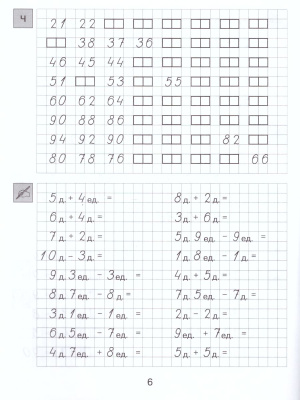 4
21 22
38 37 36
46 45 44
51 53 55
60 62 64
90 88 86
94 92 90 82
80 78 76 66
5 д. + 4 ед. = 8 д. + 2 д. =
6 д. + 4 д. = 3 д. + 6 д. =
7 д. + 2 д. = 5 д. 9 ед. - 9 ед. =
10 д. - 3 д. = 1 д. 8 ед. - 1 д. =
9 д. 3 ед. - 3 ед. = 4 д. + 5 д. =
8 д. 7 ед. - 8 д. = 7 д. 5 ед. - 7 д. =
3 д. 1 ед. - 1 ед. = 2 д. - 2 д. =
6 д. 5 ед. - 7 ед. = 9 ед. + 7 ед. =
4 д. 7 ед. + 8 ед. = 5 д. + 5 д. =
6